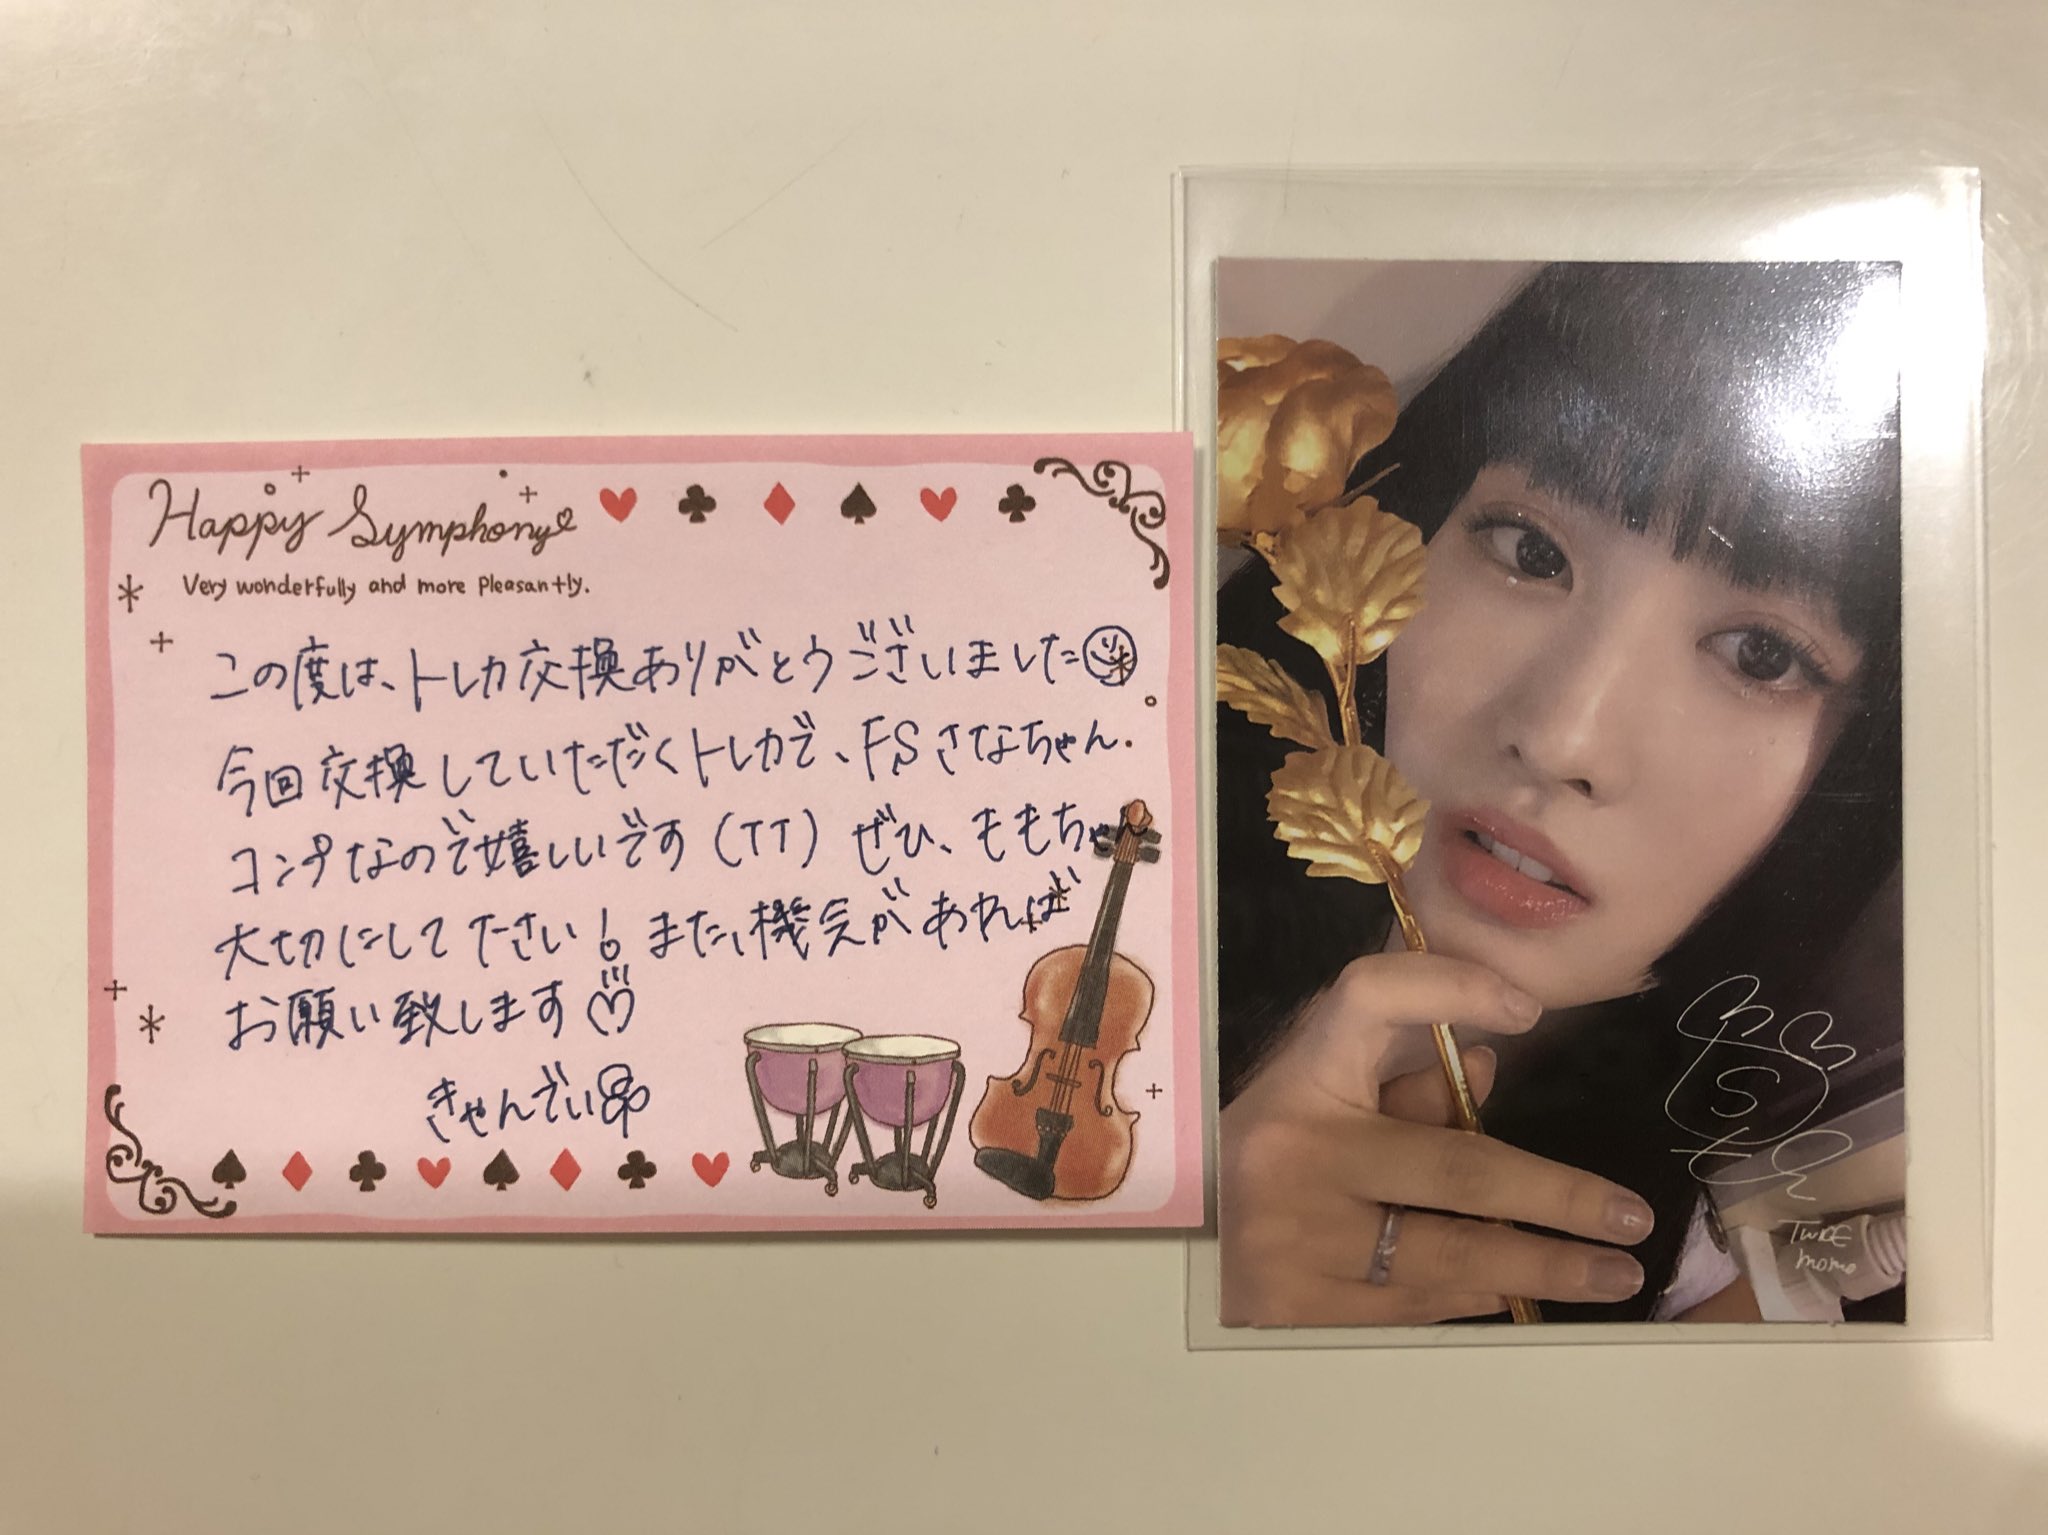 Happy Symphony
Very wonderfully and more pleasantly.
この度は、トレカ交換ありがとうございました
今回交換していただくトレカで、FSさなちゃん.
コンプなので嬉しいです(TT) ぜひ、ももちゃん
大切にして下さい! また、機会があれば
お願い致します♡
きゃんでぃ
S
TWICE
momo